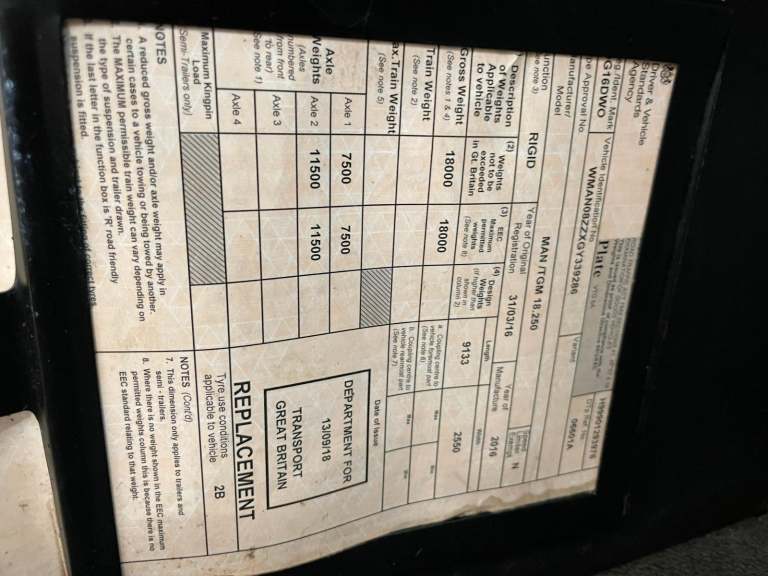 Driver & Vehicle
Standards
Agency
Plate VTG 6A
Ident. Mark
G16DWO
Vehicle Identification No.
WMAN08ZZXGY339286
Approval No.
Variant
06601A
Manufacturer/
Model
MAN /TGM 18.250
N
Function
(see note 3)
RIGID
Year of Original
Registration
31/03/16
Year of
Manufacture
2016
Description
of Weights
Applicable
to vehicle
(2) Weights
not to be
exceeded
in Gt. Britain
(3) EEC
Maximum
permitted
weights
(See note 8)
(4) Design
Weights
(if higher than
shown in
column 2)
Length
9133
Width
2550
Gross Weight
(See notes 1 & 4)
18000
18000
a. Coupling centre to
vehicle foremost part
(See note 6)
Train Weight
(See note 2)
b. Coupling centre to
vehicle rearmost part
(See note 7)
Max.Train Weight
(See note 5)
Date of Issue
Axle
Weights
(Axles
numbered
from front
to rear)
(See note 1)
Axle 1
7500
7500
Axle 2
11500
11500
Axle 3
Axle 4
DEPARTMENT FOR
13/09/18
TRANSPORT
GREAT BRITAIN
REPLACEMENT
Maximum Kingpin
Load
(Semi-Trailers only)
Tyre use conditions
applicable to vehicle
2B
NOTES
A reduced gross weight and/or axle weight may apply in
certain cases to a vehicle towing or being towed by another.
The MAXIMUM permissible train weight can vary depending on
the type of suspension and trailer drawn.
If the last letter in the function box is 'R' road friendly
suspension is fitted.
NOTES (Cont'd)
7. This dimension only applies to trailers and
semi - trailers.
8. Where there is no weight shown in the EEC maximum
permitted weights column this is because there is no
EEC standard relating to that weight.